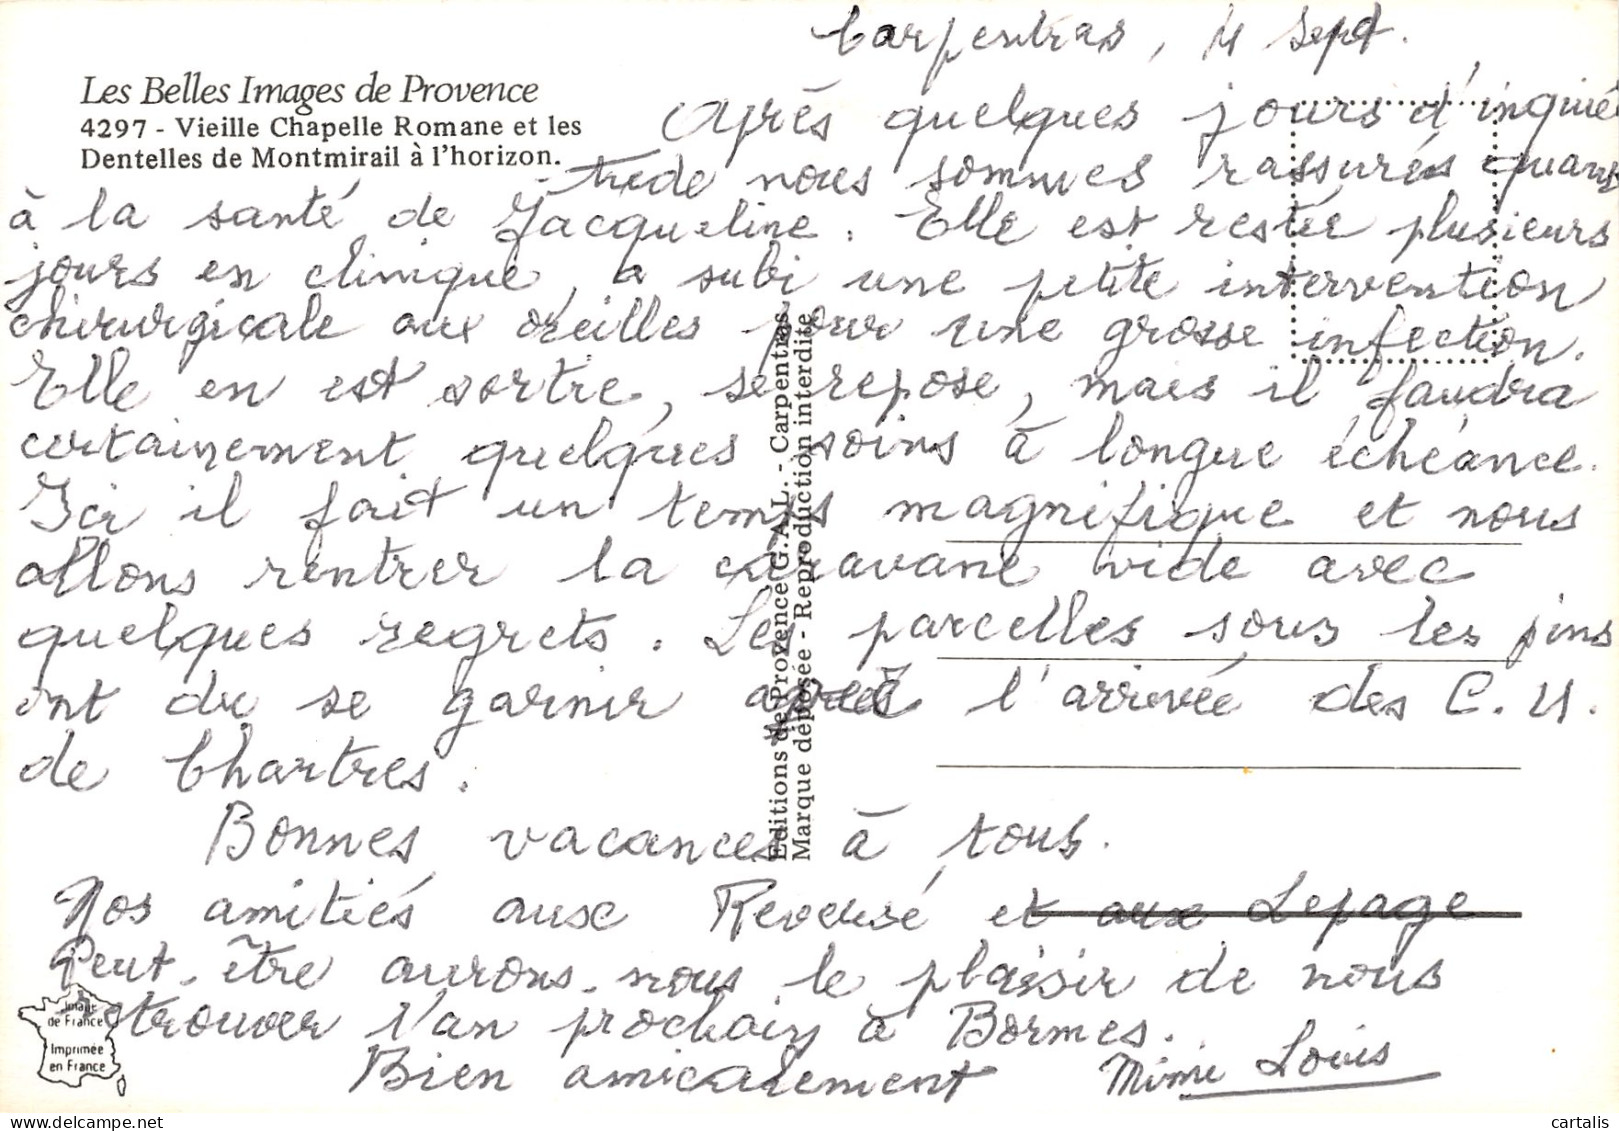 Carpentras, 4 Sept.
Les Belles Images de Provence
4297 - Vieille Chapelle Romane et les
Dentelles de Montmirail à l'horizon.
Après quelques jours d'inquié
tude nous sommes rassurés quant
à la santé de Jacqueline. Elle est restée plusieurs
jours en clinique, a subi une petite intervention
chirurgicale aux oreilles pour une grosse infection.
Elle en est sortie, se repose, mais il faudra
certainement quelques soins à longue échéance.
Ici il fait un temps magnifique et nous
allons rentrer la caravane vide avec
quelques regrets. Les parcelles sous les pins
ont du se garnir après l'arrivée des C.U.
de Chartres.
Bonnes vacances à tous.
Nos amitiés aux et aux Lepage
Peut-être aurons-nous le plaisir de nous
retrouver l'an prochain à Bormes.
Bien amicalement Mimi Louis
Editions de Provence G.A.L. - Carpentras
Marque déposée - Reproduction interdite
Image
de France
Imprimée
en France
cartalis